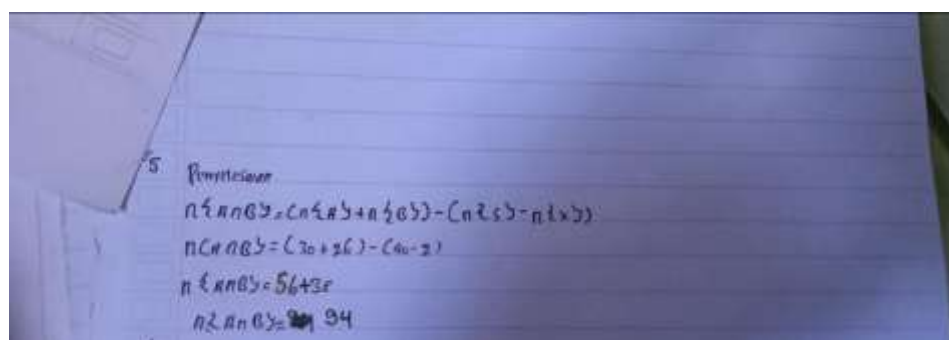 5 Penyelesaian
n{A∩B}=(n{A}+n{B})-(n{S}-n{x})
n(A∩B}=(30+26)-(40-2)
n{A∩B}=56+38
n{A∩B}= 94